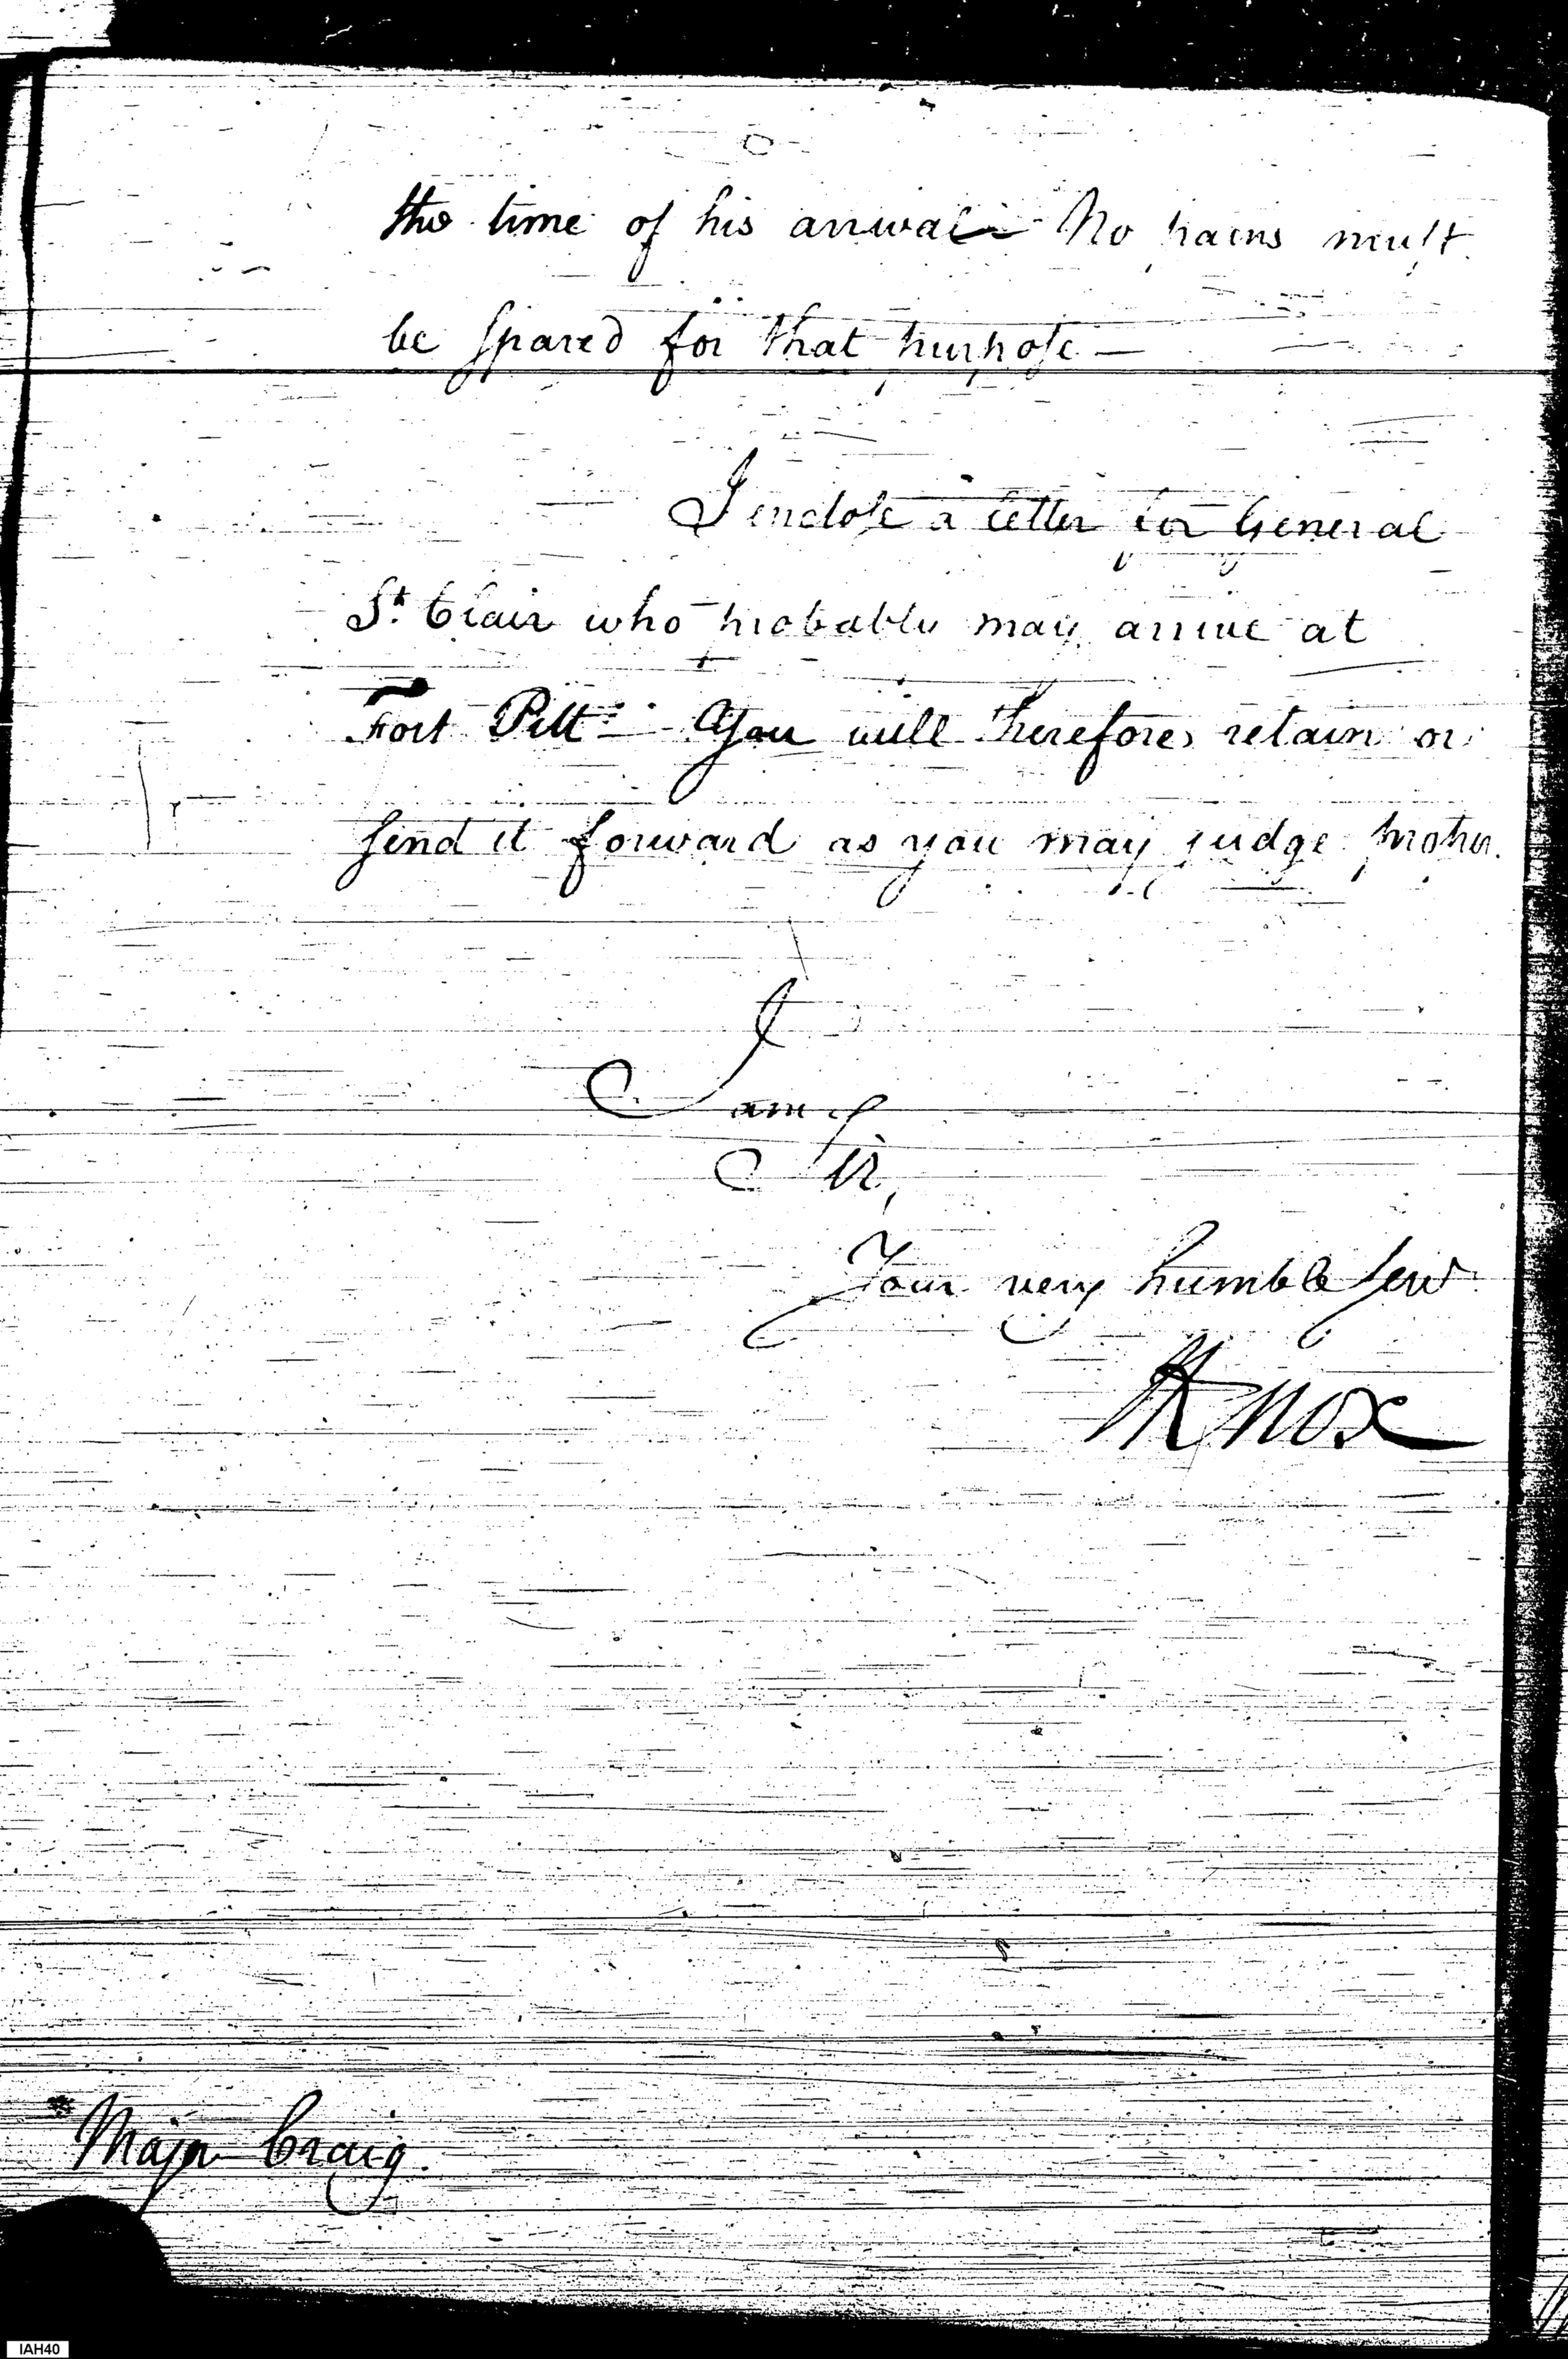 the time of his arrival – No pains must
be spared for that purpose —
I enclose a letter for General
St. Clair who probably may arrive at
Fort Pitt – You will therefore, retain or
send it forward as you may judge proper.
I
am
Sir,
Your very humble Serv
HKnox
Major Craig.
IAH40